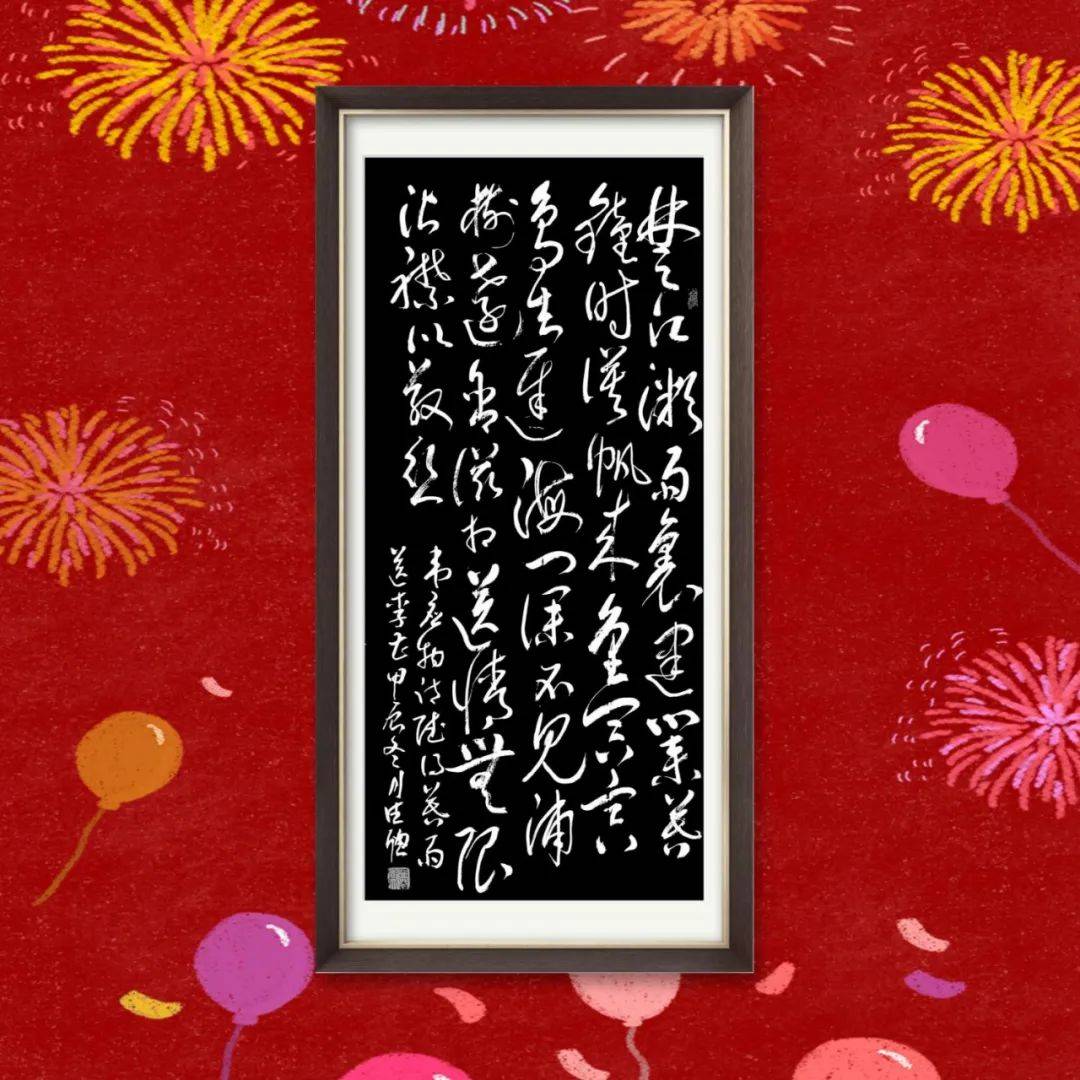 楚江微雨裏建業暮
鐘时漠帆来重冥冥
鸟去遲海门深不见浦
樹遠含滋相送情無限
沾襟比散丝
韦应物诗赋得暮雨
送李胄甲辰冬月